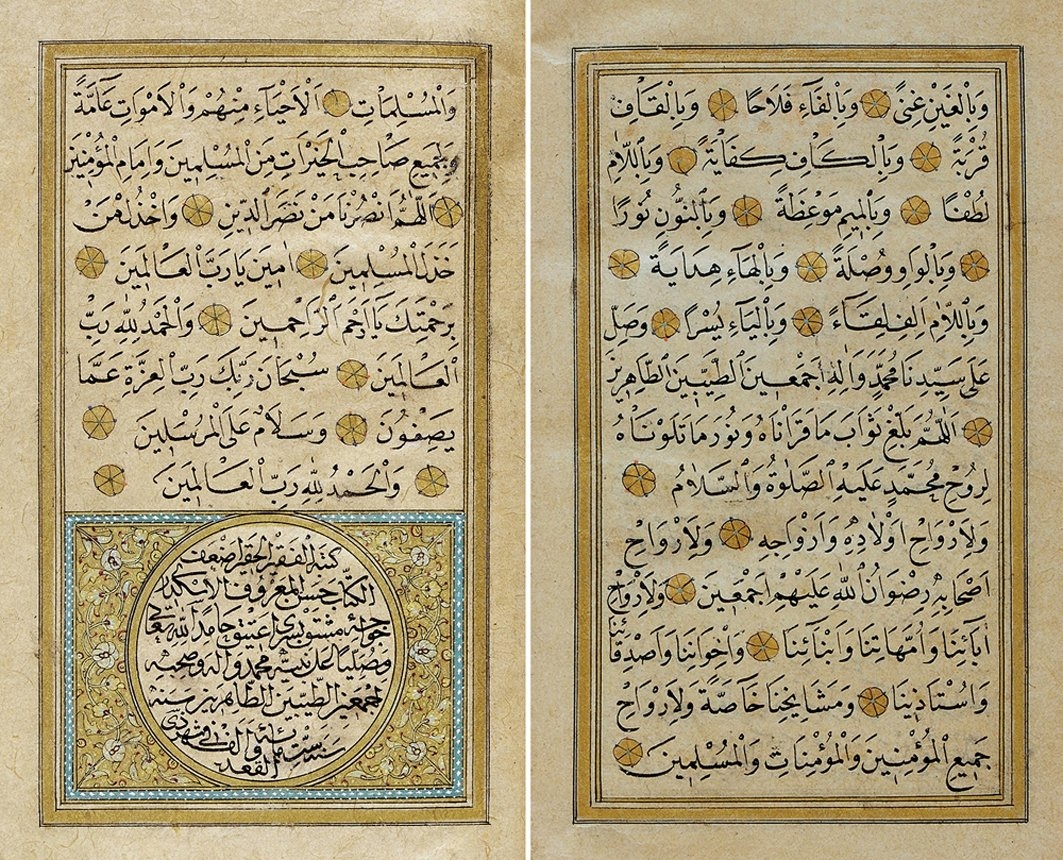 وَبِالْغَيْنِ غِنًى وَبِالْفَاءِ فَلَاحًا وَبِالْقَافِ
قُرْبَةً وَبِالْكَافِ كِفَايَةً وَبِاللَّامِ
لُطْفًا وَبِالْمِيمِ مَوْعِظَةً وَبِالنُّونِ نُورًا
وَبِالْوَاوِ وُصْلَةً وَبِالْهَاءِ هِدَايَةً
وَبِاللَّامِ اَلِفِ لِقَاءً وَبِالْيَاءِ يُسْرًا وَصَلِّ
عَلَى سَيِّدِنَا مُحَمَّدٍ وَاٰلِهِ اَجْمَعِينَ الطَّيِّبِينَ الطَّاهِرِينَ
اَللّٰهُمَّ بَلِّغْ ثَوَابَ مَا قَرَأْنَاهُ وَنُورَ مَا تَلَوْنَاهُ
لِرُوحِ مُحَمَّدٍ عَلَيْهِ الصَّلٰوةُ وَالسَّلَامُ
وَلِاَرْوَاحِ اَوْلَادِهِ وَاَزْوَاجِهِ وَلِاَرْوَاحِ
اَصْحَابِهِ رِضْوَانُ اللّٰهِ عَلَيْهِمْ اَجْمَعِينَ وَلِاَرْوَاحِ
اٰبَائِنَا وَاُمَّهَاتِنَا وَاَبْنَائِنَا وَاِخْوَانِنَا وَاَصْدِقَائِنَا
وَاُسْتَاذِينَا وَمَشَايِخِنَا خَاصَّةً وَلِاَرْوَاحِ
جَمِيعِ الْمُؤْمِنِينَ وَالْمُؤْمِنَاتِ وَالْمُسْلِمِينَ
وَالْمُسْلِمَاتِ اَلْاَحْيَاءِ مِنْهُمْ وَالْاَمْوَاتِ عَامَّةً
وَلِجَمِيعِ صَاحِبِ الْخَيْرَاتِ مِنَ الْمُسْلِمِينَ وَاِمَامِ الْمُؤْمِنِينَ
اَللّٰهُمَّ انْصُرْنَا مَنْ نَصَرَ الدِّينِ وَاخْذُلْ مَنْ
خَذَلَ الْمُسْلِمِينَ اٰمِينَ يَا رَبَّ الْعَالَمِينَ
بِرَحْمَتِكَ يَا اَرْحَمَ الرَّاحِمِينَ وَالْحَمْدُ لِلّٰهِ رَبِّ
الْعَالَمِينَ سُبْحَانَ رَبِّكَ رَبِّ الْعِزَّةِ عَمَّا
يَصِفُونَ وَسَلَامٌ عَلَى الْمُرْسَلِينَ
وَالْحَمْدُ لِلّٰهِ رَبِّ الْعَالَمِينَ
كتبه الفقير الحقير اضعف
الكتاب حسن المعروف
خواجه حامدا لله تعالى
ومصليا على نبيه محمد وآله وصحبه
اجمعين الطيبين الطاهرين سنه
ست والف
القعده